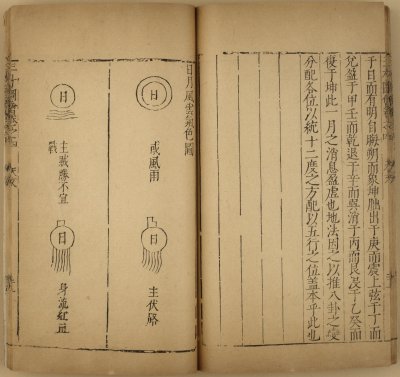 于日而有明自晦朔而象坤朏出于庚而震上弦于丁而
兌盈于甲壬而乾退于辛而巽消于丙而艮沒于乙癸而
復于坤此一月之消息盈虛也地法因之以推八卦之變
分配各位以統十二度之方配以五行之位蓋本乎此也
日月風雲氣色圖
日
或風雨
日
主伏路
日
主戰勝不宜
戰
日
身流紅血